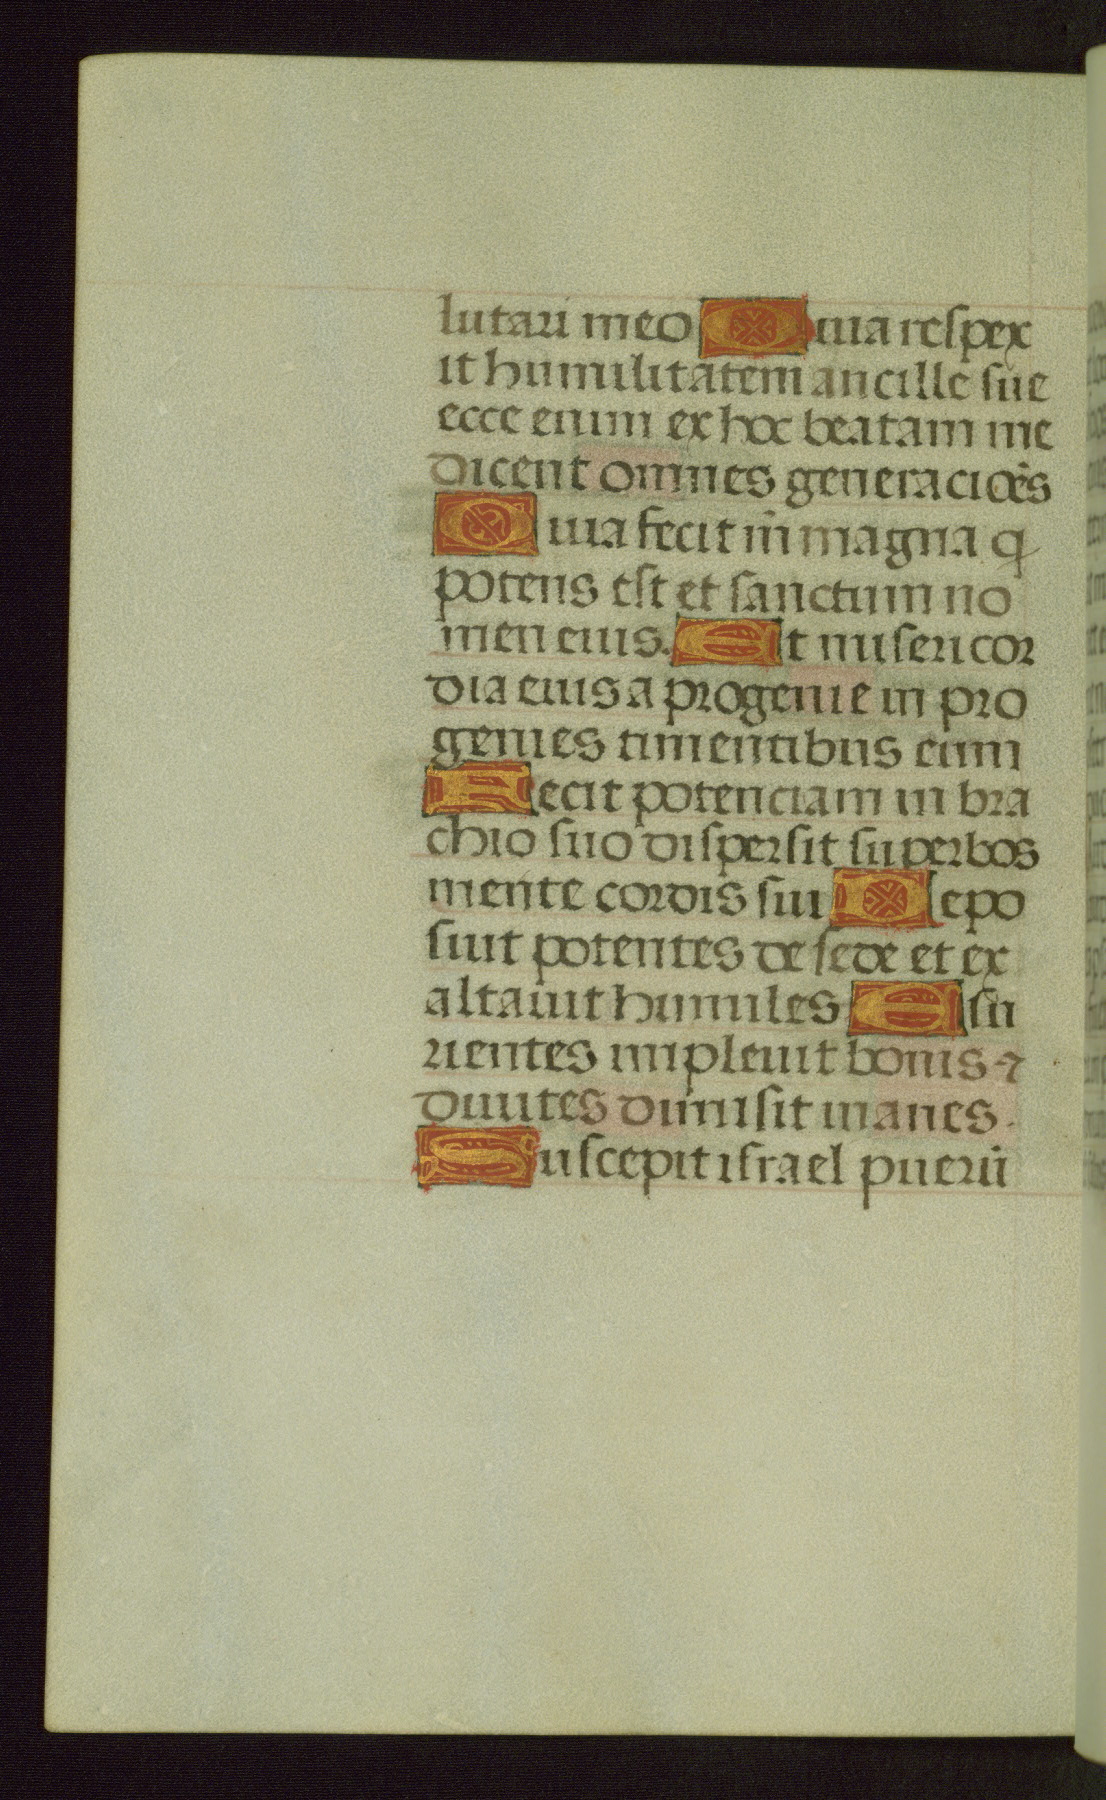 lutari meo Quia respex
it humilitatem ancille sue
ecce enim ex hoc beatam me
dicent omnes generacio͞es
Quia fecit m̄ magna q̄
potens est et sanctum no
men eius. Et misericor
dia eius a progenie in pro
genies timentibus eum
Fecit potenciam in bra
chio suo dispersit superbos
mente cordis sui Depo
suit potentes de sede et ex
altauit humiles Esu
rientes impleuit bonis ⁊
diuites dimisit inanes.
Suscepit israel puerū